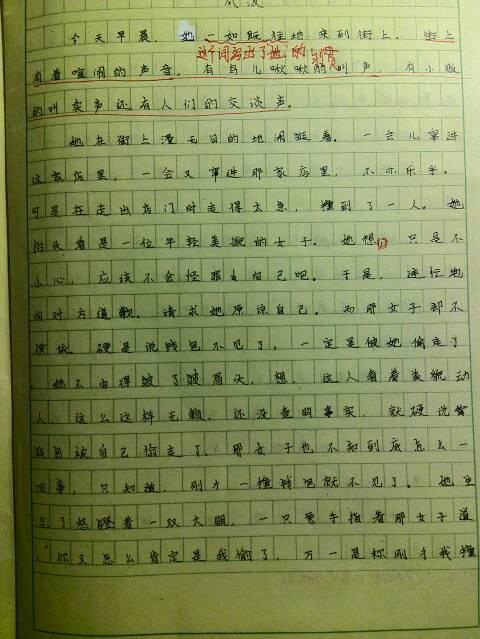 风波
今天早晨，她一如既往地来到街上。街上
这个词写出了"她"的习惯
有着喧闹的声音，有鸟儿啾啾的叫声，有小贩
的叫卖声还有人们的交谈声。
她在街上漫无目的地闲逛着。一会儿窜进
这家店里，一会又窜进那家店里，不亦乐乎。
可是在走出店门时走得太急，撞到了一人。她
抬头看是一位年轻美貌的女子。她想 只是不
小心，应该不会怪罪自己吧。于是，连忙地
向对方道歉。请求她原谅自己。而那女子却不
领依。硬是说钱包不见了，一定是被她偷走了
。她不由得皱了皱眉头，想，这人看着美貌动
人，这么这样无赖，还没查明事实，就硬说
包被自己偷走了。那女子也不知到底怎么一
回事，只知道，刚才一撞钱包就不见了。她生
气了怒瞪着一双大眼，一只手指着那女子道
："你又怎么肯定是我偷了，万一是你刚才我撞